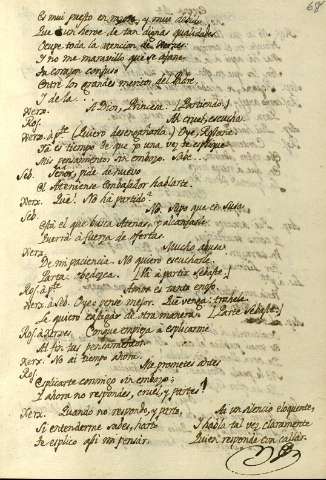 68
Es mui puesto en razon, y mui devido
Que un heroe de tan dignas qualidades
Ocupe toda la atencion de Xerxes.
Y no me maravillo que se afane
Su corazon confuso
Entre los grandes meritos del Padre
Y de la...
Xerx. A Dios, Princesa. [Partiendo.]
Ros. Ah cruel, escucha
Xerx. á pte. (Quiero desengañarla.) Oye, Rosane
Ya es tiempo de que una vez te explique
Mis pensamientos sin embozo. Sabe...
Seb. Señor, pide de nuevo
El Ateniense Embajador hablarte.
Xerx. Que! No ha partido?
Seb. No. Supo que en Susa
Está el que busca Atenas, y alcanzarle
Querrá á fuerza de ofertas.
Xerx. Mucho abusa
De mi paciencia. No quiero escucharle.
Parta: obedezca. [Vá á partir Sebaste.]
Ros. á pte. Amor es tanto enojo.
Xerx. á Seb. Oye: pensé mejor. Que venga: trahele
Le quiero castigar de otra manera. [Parte Sebaste.]
Ros. á Xerxes. Conque empieza á explicarme
Al fin tus pensamientos.
Xerx. No ai tiempo ahora.
Ros. Me prometes antes
Explicarte conmigo sin embozo;
Y ahora no respondes, cruel, y partes!
Xerx. Quando no respondo, y parto,
Si entenderme sabes, harto
Te explico assi mi pensar.
Ai un silencio eloquente,
Y habla tal vez claramente
Quien responde con callar.